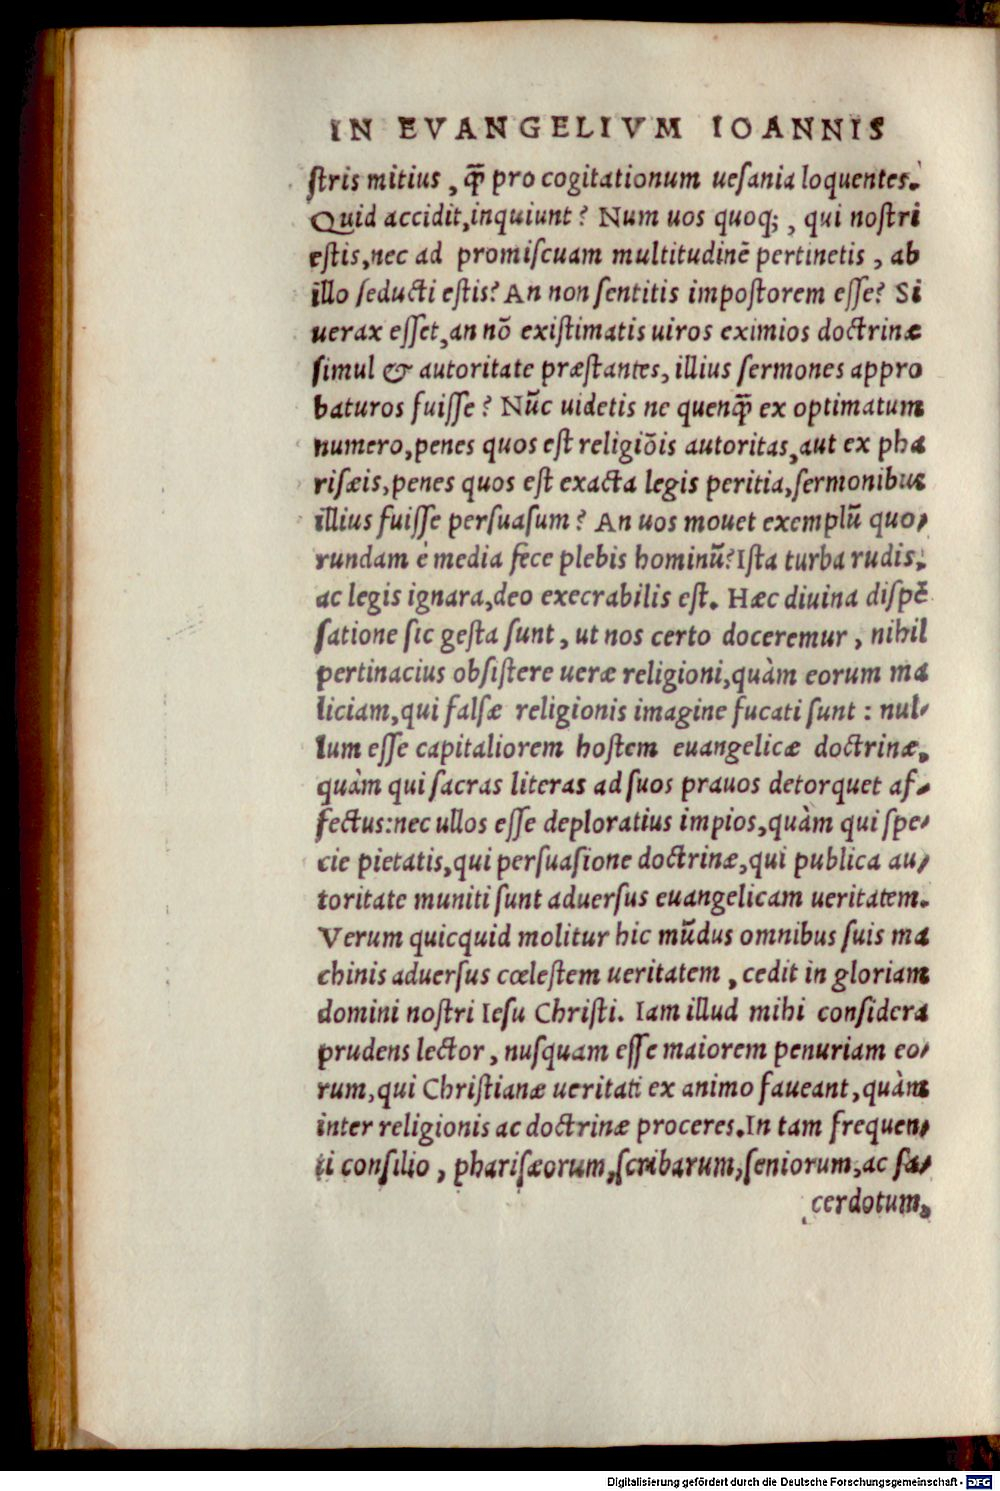 IN EVANGELIVM IOANNIS
ſtris mitius, q̄ꝫ pro cogitationum ueſania loquentes.
Quid accidit, inquiunt? Num uos quoq;, qui noſtri
eſtis, nec ad promiſcuam multitudinē pertinetis, ab
illo ſeducti eſtis? An non ſentitis impoſtorem eſſe? Si
uerax eſſet, an nō exiſtimatis uiros eximios doctrinæ
ſimul & autoritate præſtantes, illius ſermones appro
baturos fuiſſe? Nūc uidetis ne quenq̄ꝫ ex optimatum
numero, penes quos eſt religiōis autoritas, aut ex pha
riſæis, penes quos eſt exacta legis peritia, ſermonibus
illius fuiſſe perſuaſum? An uos mouet exemplū quo-
rundam è media fece plebis hominū? Iſta turba rudis,
ac legis ignara, deo execrabilis eſt. Hæc diuina diſpē
ſatione ſic geſta ſunt, ut nos certo doceremur, nihil
pertinacius obſiſtere ueræ religioni, quàm eorum ma
liciam, qui falſæ religionis imagine fucati ſunt: nul-
lum eſſe capitaliorem hoſtem euangelicæ doctrinæ,
quàm qui ſacras literas ad ſuos prauos detorquet af-
fectus: nec ullos eſſe deploratius impios, quàm qui ſpe-
cie pietatis, qui perſuaſione doctrinæ, qui publica au-
toritate muniti ſunt aduerſus euangelicam ueritatem.
Verum quicquid molitur hic mūdus omnibus ſuis ma
chinis aduerſus cœleſtem ueritatem, cedit in gloriam
domini noſtri Ieſu Chriſti. Iam illud mihi conſidera
prudens lector, nuſquam eſſe maiorem penuriam eo-
rum, qui Chriſtianæ ueritati ex animo faueant, quàm
inter religionis ac doctrinæ proceres. In tam frequen-
ti conſilio, phariſæorum, ſcribarum, ſeniorum, ac ſa-
cerdotum,
Digitalisierung gefördert durch die Deutsche Forschungsgemeinschaft - DFG